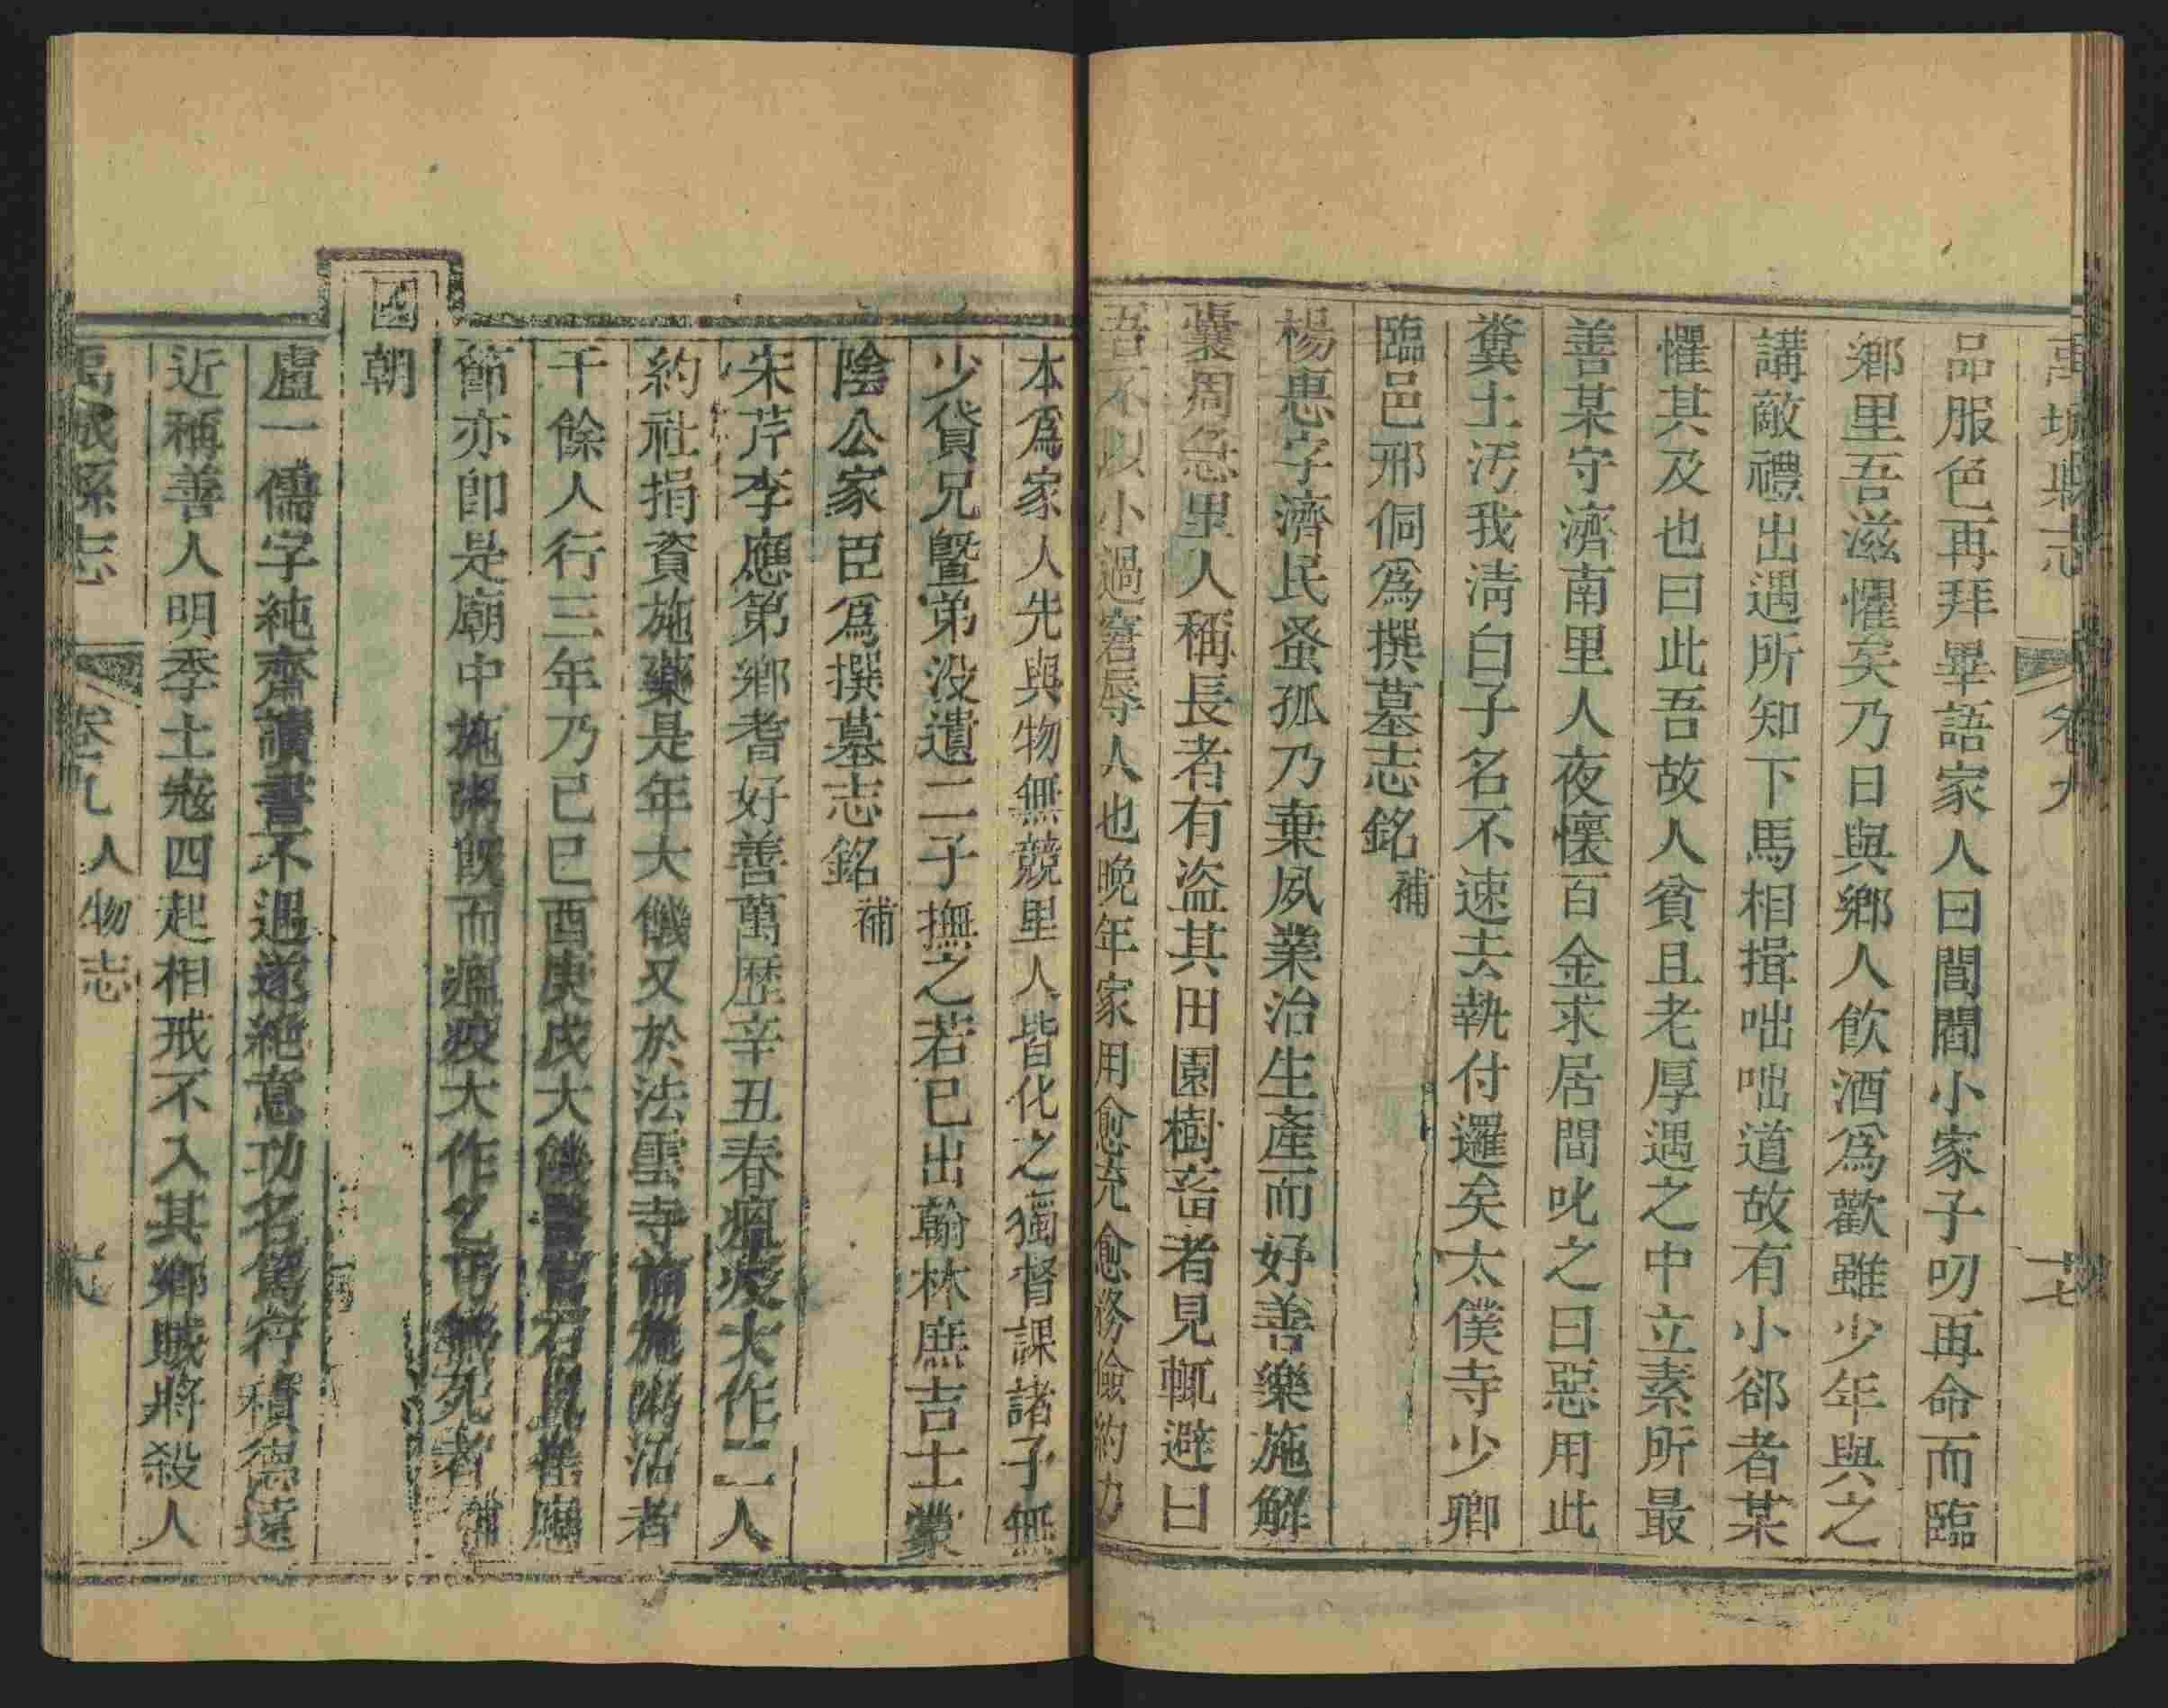 禹城縣志 卷九 十七
品服色再拜畢語家人曰閭閻小家子叨再命而臨
鄉里吾滋懼矣乃日與鄉人飲酒爲歡雖少年與之
講敵禮出遇所知下馬相揖咄咄道故有小郤者某
懼其及也曰此吾故人貧且老厚遇之中立素所最
善某守濟南里人夜懷百金求居間叱之曰惡用此
糞土汚我淸白子名不速去執付邏矣太僕寺少卿
臨邑邢侗爲撰墓志銘補
楊惠字濟民蚤孤乃棄夙業治生產而好善樂施解
囊周急里人稱長者有盜其田園樹畜者見輒避曰
吾不以小過窘辱人也晚年家用愈充愈務儉約力
本爲家人先與物無競里人皆化之獨督課諸子無
少貸兄曁弟没遺二子撫之若已出翰林庶吉士蒙
陰公家臣爲撰墓志銘補
宋芹李應第鄉耆好善萬歷辛丑春瘟疫大作二人
約社捐資施藥是年大饑又於法雲寺前施粥活者
千餘人行三年乃已己酉庚戌大饑醫官石
節亦卽是廟中施粥旣而瘟疫大作乞死者補
國朝
盧一儒字純齋讀書不遇遂絶意功名篤行積德遠
近稱善人明季土宼四起相戒不入其鄉賊將殺人
禹城縣志 卷九 人物志 十八